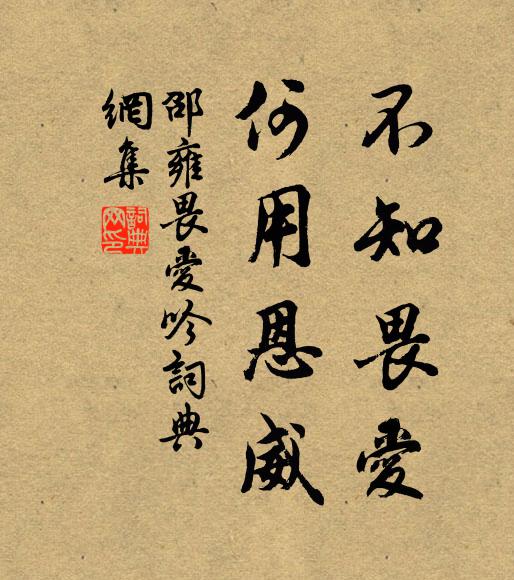 不知畏愛
何用恩威
邵雍畏愛吟詞典
網集
詞典网印